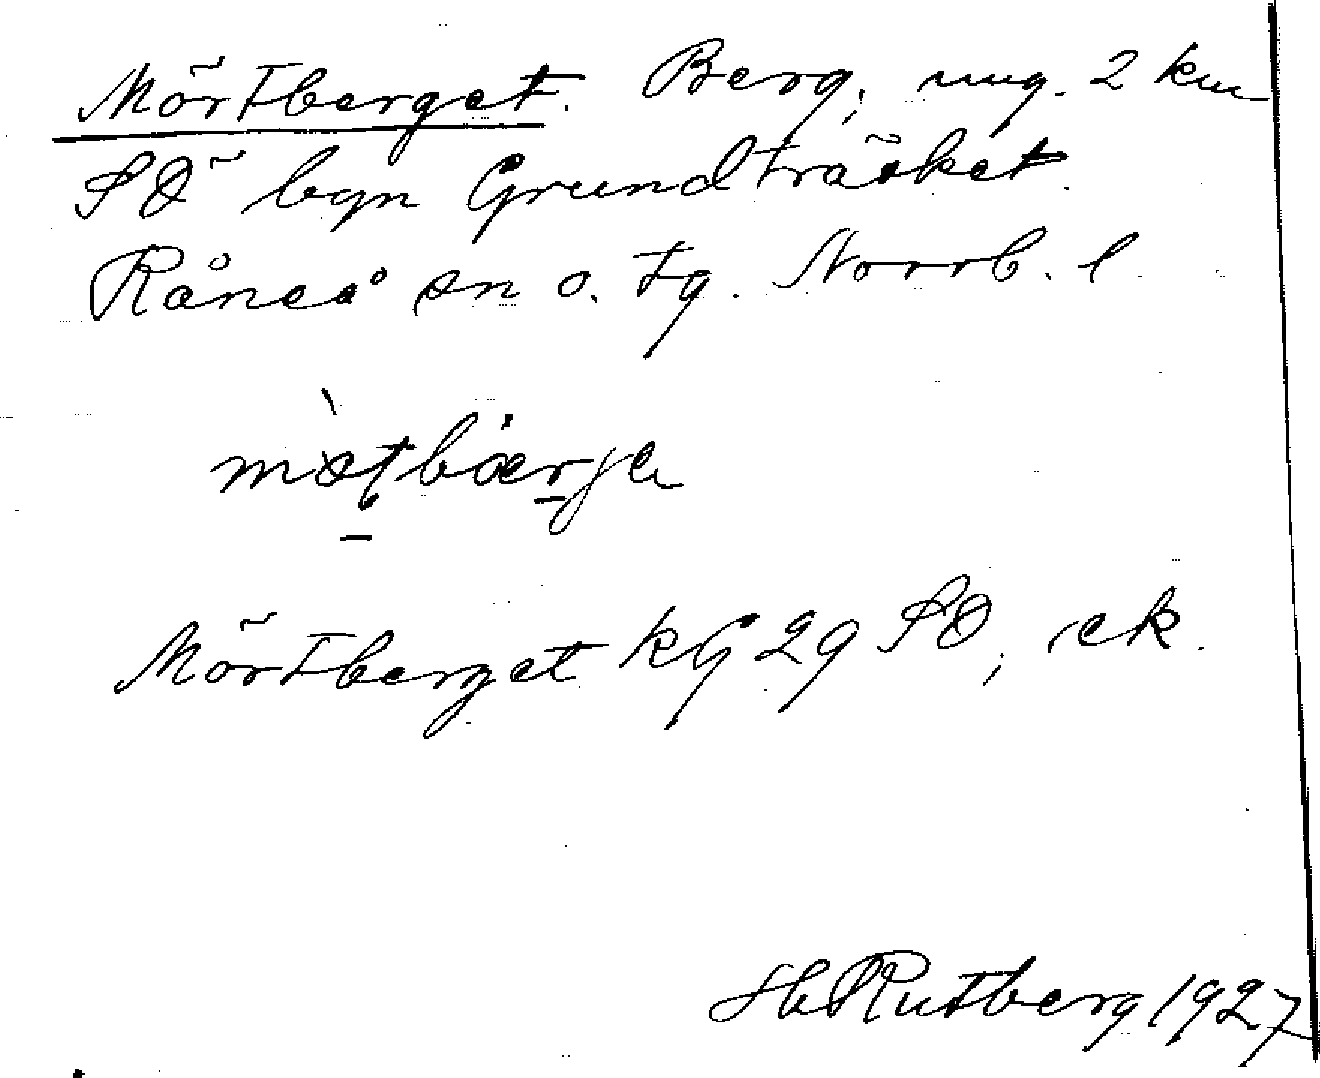 Mörtberget. Berg, ung. 2 km
SÖ byn Grundträsket.
Råneå sn o. tg. Norrb. l.
Mörtberget kG 29 SO, ek.
H Rutberg 1927